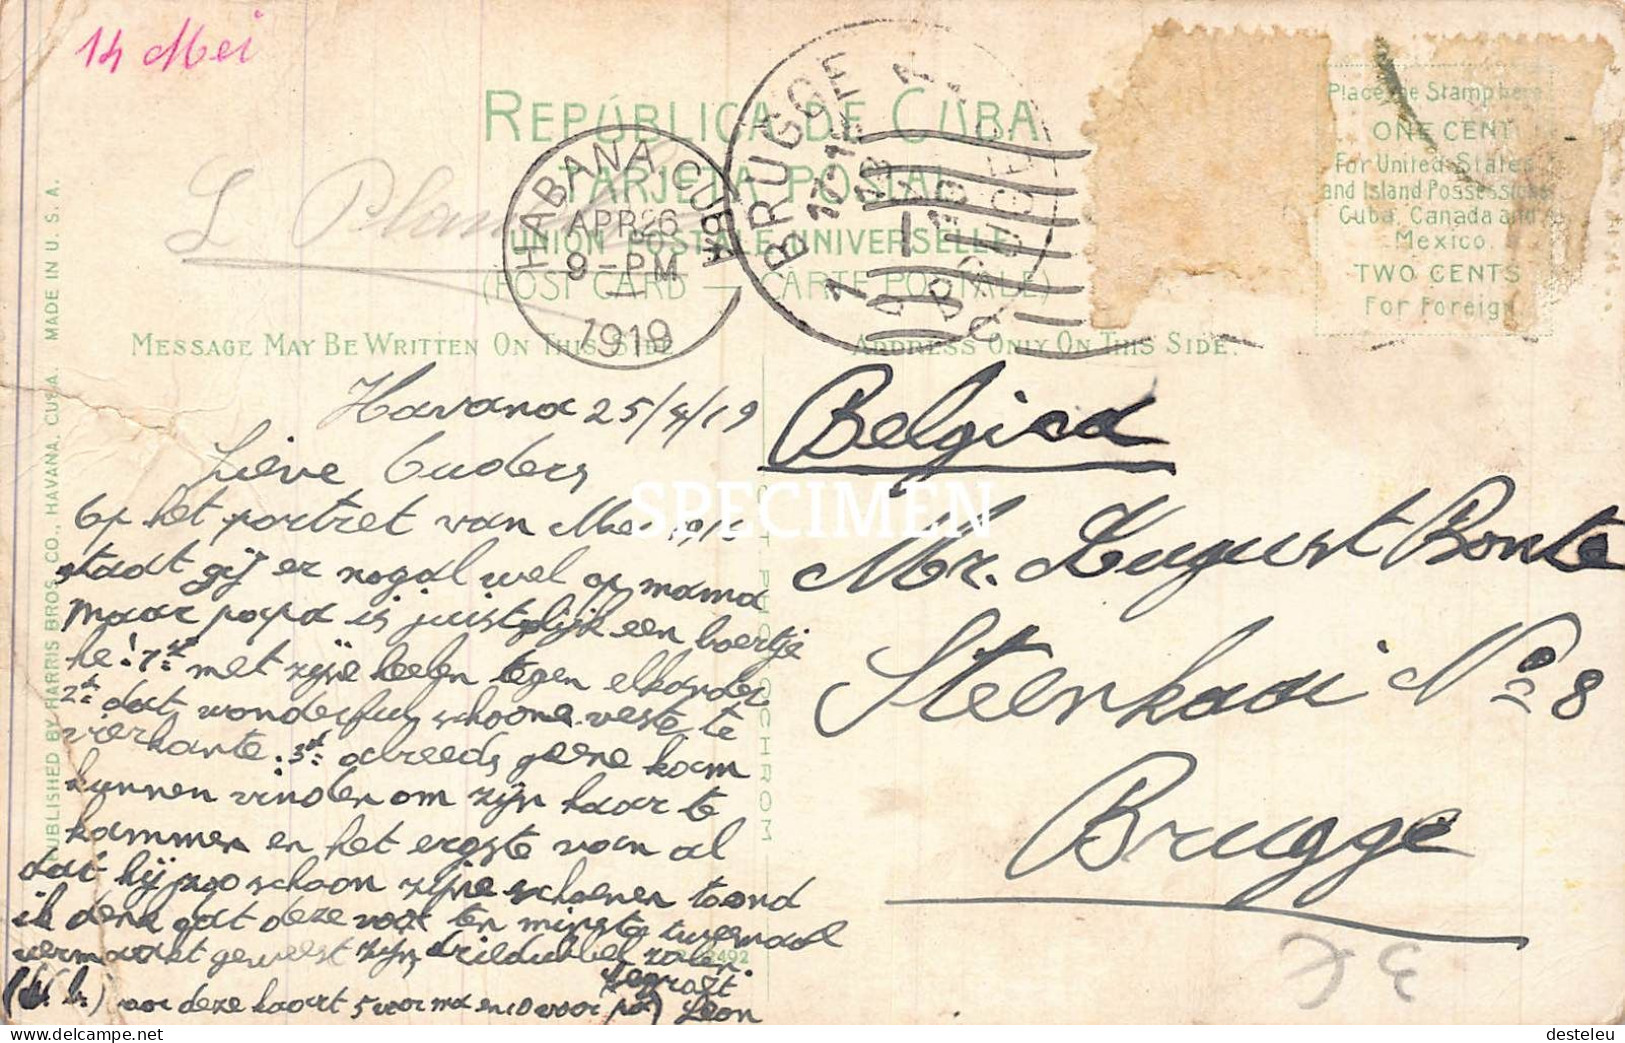 14 Mei
REPÚBLICA DE CUBA
TARJETA POSTAL
UNION POSTALE UNIVERSELLE
(POST CARD — CARTE POSTALE)
HABANA, CUBA
APR 26
9-PM
1919
BRUGGE
BRUGGE
Place the Stamp here
ONE CENT
For United States
and Island Possessions
Cuba, Canada and
Mexico.
TWO CENTS
For Foreign
MESSAGE MAY BE WRITTEN ON THIS SIDE
ADDRESS ONLY ON THIS SIDE.
PUBLISHED BY HARRIS BROS. CO., HAVANA, CUBA. MADE IN U. S. A.
C. T. PHOTOCHROM
Havana 25/4/19
Lieve Ouders
Op het portret van Mei
staat gij er nogal wel op, mama
maar papa is juist gelijk een boertje
he! 1st met zijne beelen tegen elkander
2de dat wonderfull schoone veste te
vierkante. 3de alreeds geene kam
kunnen vinden om zijn haar te
kammen en het ergste van al
dat hij zoo schoon zijne schoenen toond
ik denk dat deze voor ten minste tweemaal
vermaakt geweest zijn driedubbel zolen
voor deze kaart 5 voor ma en 10 voor pa) Leon
Belgica
Mr. August Bonte
Steenkaai No 8
Brugge
SPECIMEN
www.delcampe.net
desteleu